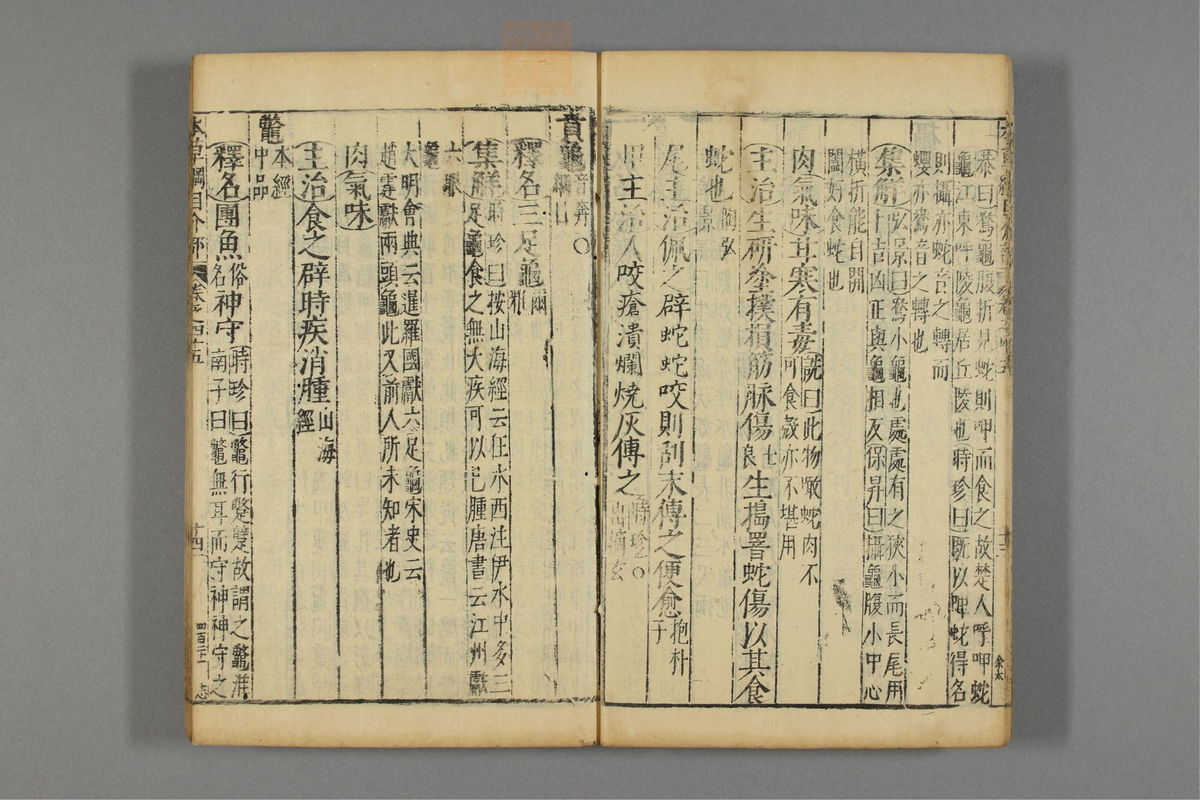 恭曰鴦龜腹折見蛇則呷而食之故楚人呼呷蛇
龜江東呼陵龜居丘陵也時珍曰既以呷蛇得名
則攝亦蛇音之轉而
蠳亦鴦音之轉也
集解弘景曰鴦小龜也處處有之狹小而長尾用
卜吉凶正與龜相反保昇曰攝龜腹小中心
橫折能自開
闔好食蛇也
肉氣味甘寒有毒詵曰此物噉蛇肉不
可食殼亦不堪用
主治生研塗撲損筋脉傷士良生搗署蛇傷以其食
蛇也陶弘景
尾主治佩之辟蛇蛇咬則刮末傅之便愈抱朴子
甲主治人咬瘡潰爛燒灰傅之時珍○出摘玄
賁龜音奔○綱目
釋名三足龜爾雅
集解時珍曰按山海經云狂水西注伊水中多三
足龜食之無大疾可以已腫唐書云江州獻
六眼龜
大明會典云暹羅國獻六足龜宋史云
趙霆獻兩頭龜此又前人所未知者也
肉氣味
主治食之辟時疾消腫山海經
鼈本經中品
釋名團魚俗名神守時珍曰鼈行蹩躄故謂之鼈淮
南子曰鼈無耳而守神神守之
十四